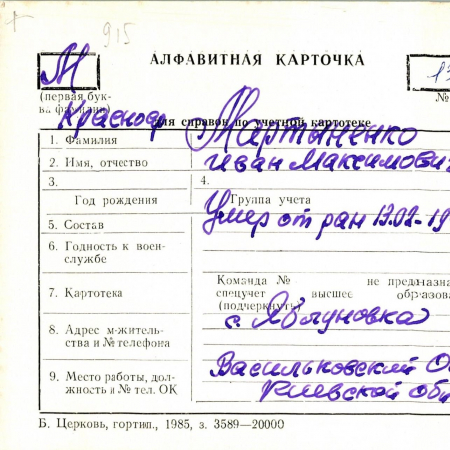 915
АЛФАВИТНАЯ КАРТОЧКА
М
13
(первая бук-
ва фамилии)
№
для справок по учетной картотеке
Красноар
1. Фамилия Мартыненко
2. Имя, отчество Иван Максимович
3. 4.
Год рождения Группа учета
5. Состав Умер от ран 13.02-19
6. Годность к воен-
службе
Команда № не предназна
7. Картотека спецучет высшее образова
(подчеркнуть)
с. Яблуновка
8. Адрес м-житель-
ства и № телефона
Васильковский О
9. Место работы, дол-
жность и № тел. ОК
Киевской об
Б. Церковь, гортип., 1985, з. 3589—20000